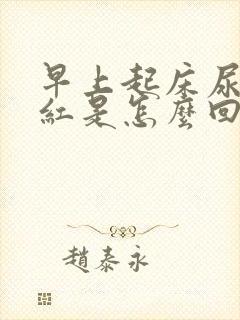 早上起床尿
紅是怎麼回
趙泰永